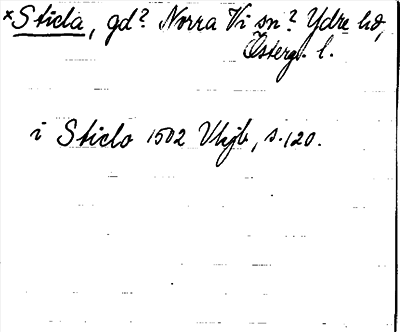 ×Sticla, gd? Norra Vi sn? Ydre hd,
Österg. l.
i Sticlo 1502 Vhjb, s. 120.